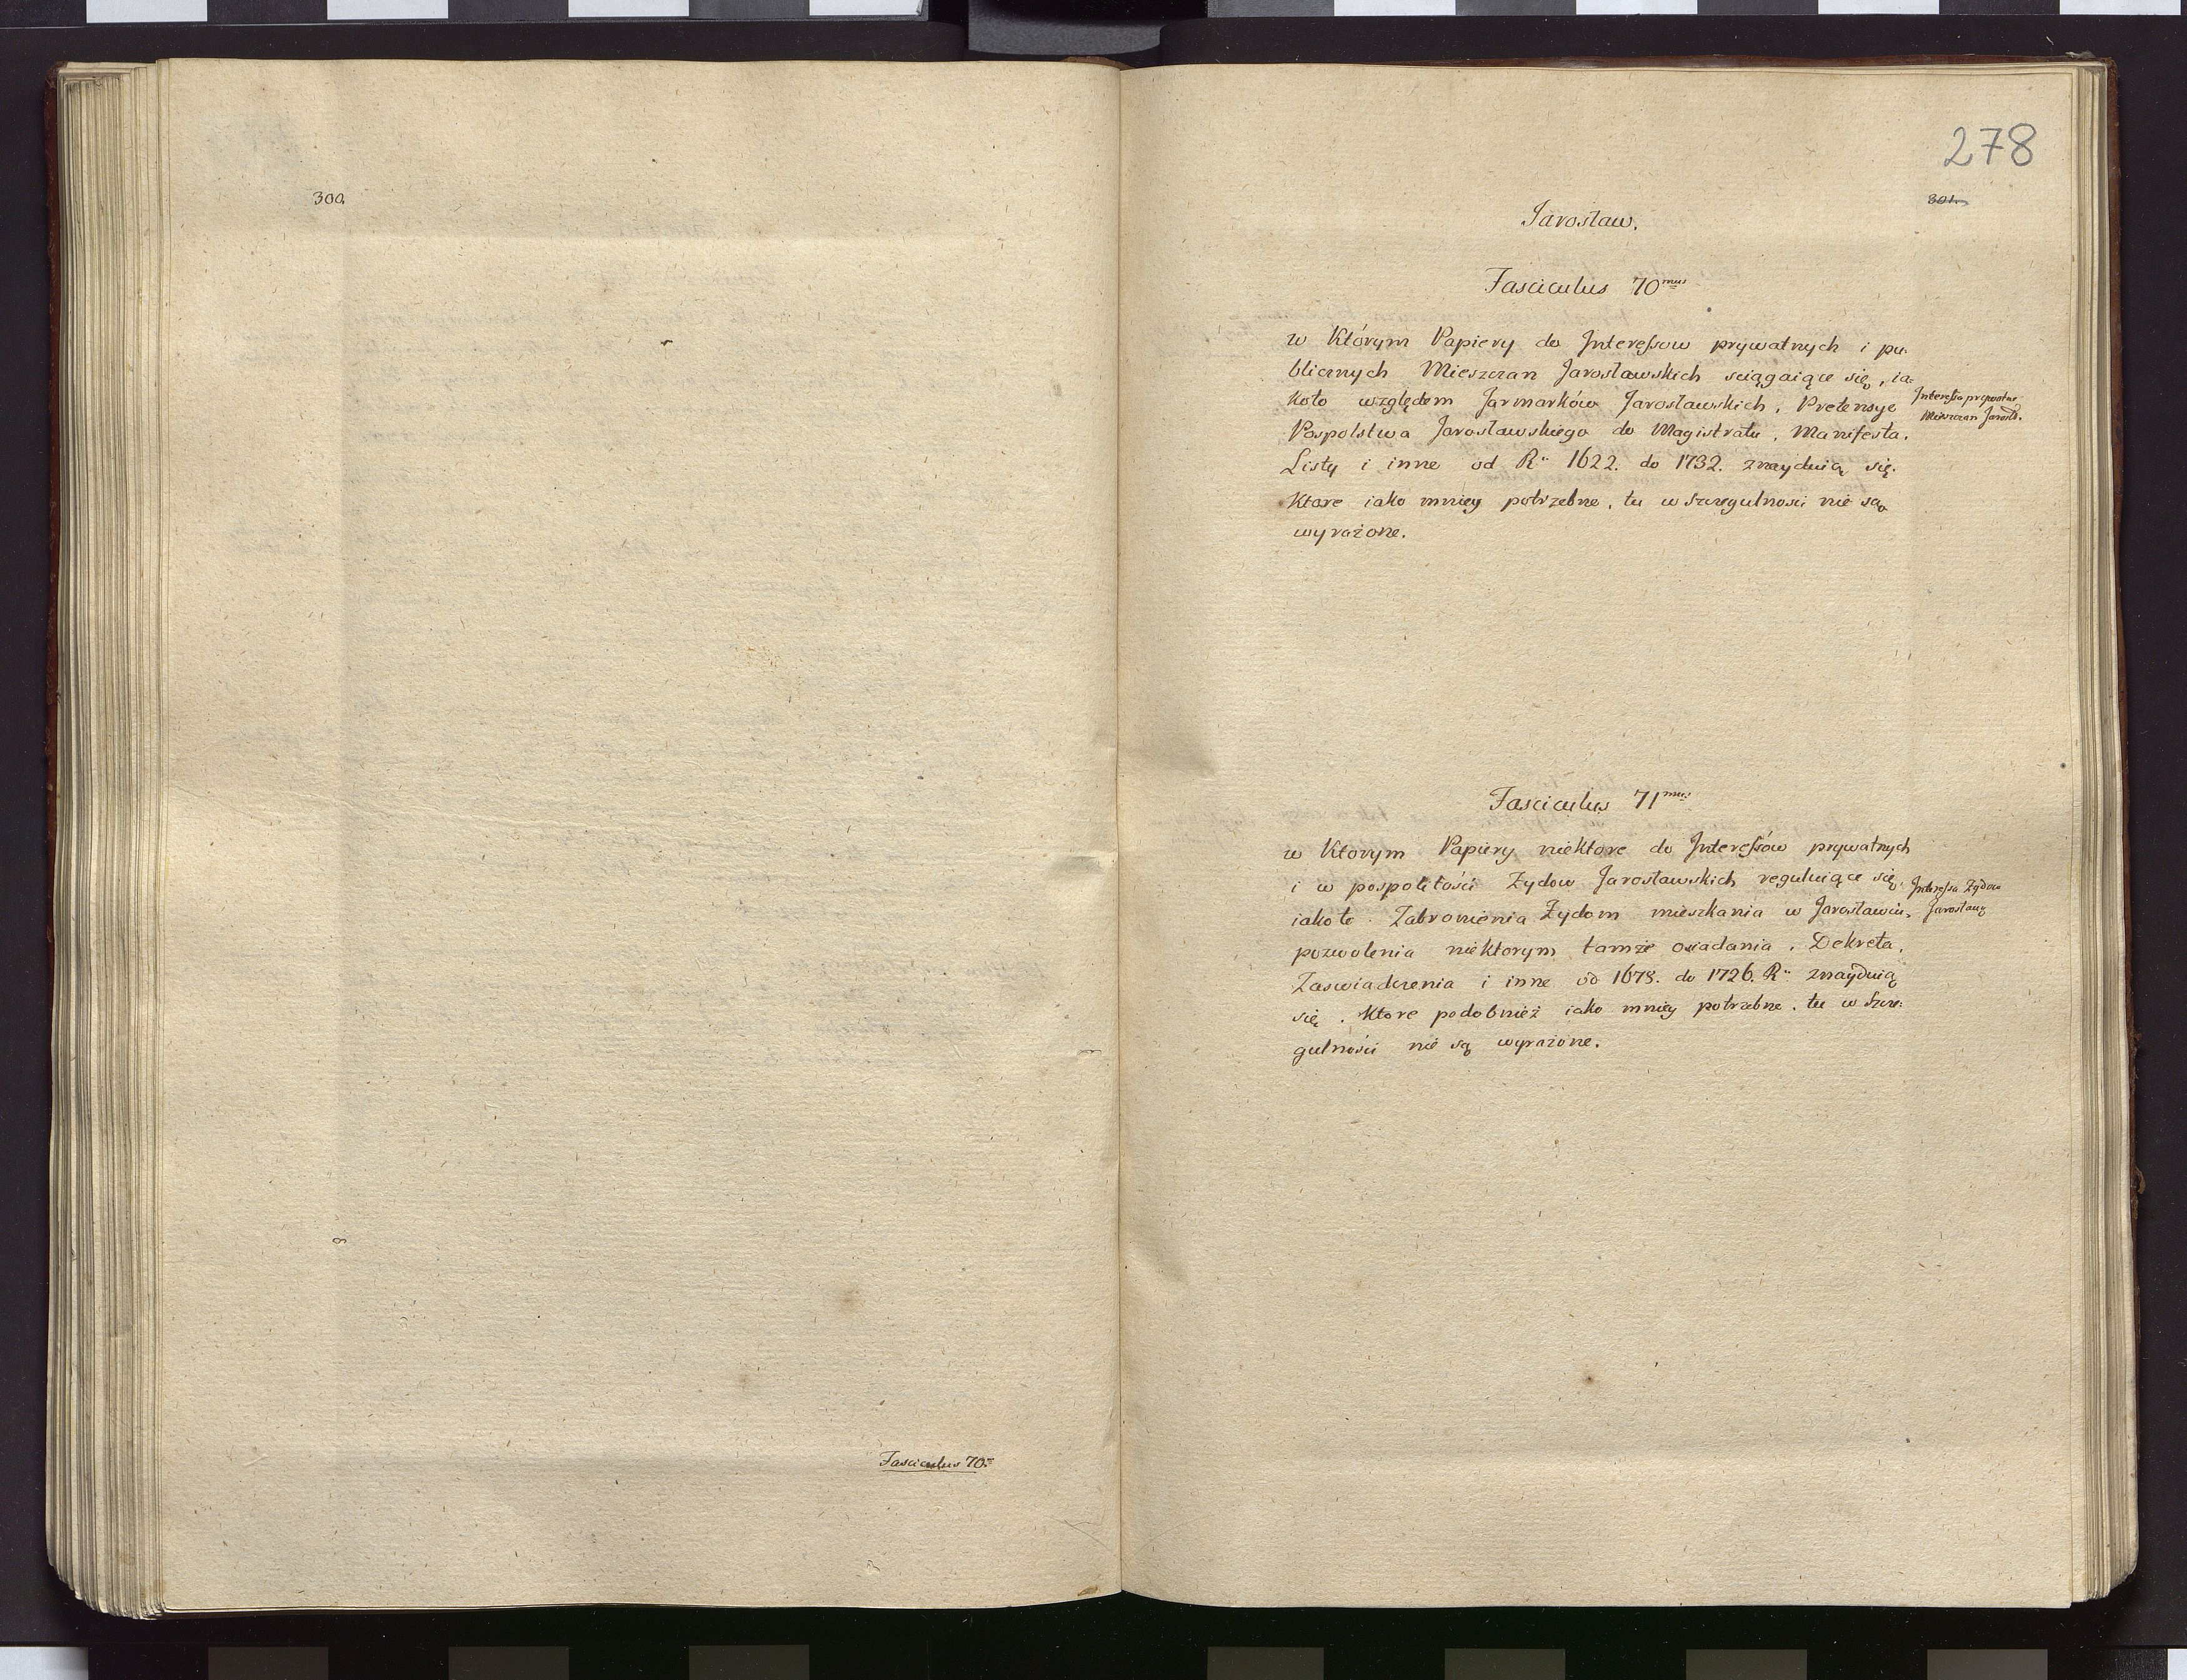 300.
Fasciculus 70us
278
301.
Jarosław.
Fasciculus 70mus
w Którym Papiery do Interessow prywatnych i pu:
blicznych Mieszczan Jarosławskich sciągaiące się, ia:
koto względem Jarmarków Jarosławskich, Pretensye
Interessa prywatne
Mieszczan Jarosł.
Pospolstwa Jarosławskiego do Magistratu, Manifesta,
Listy i inne od Ru 1622. do 1732. znayduią się.
Ktore iako mniey potrzebne, tu w Szczegulnosci nie są
wyrażone.
Fasciculus 71mus
w Ktorym Papiery niektore do Interessów prywatnych
i w pospolitości Zydow Jarosławskich reguluiące się,
Interessa Zydow
Jarosław
iakoto Zabronienia Zydom mieszkania w Jarosławiu,
pozwolenia niektorym tamże osiadania, Dekreta,
Zaswiadczenia i inne od 1678. do 1726. Ru znayduią
się. Ktore podobnież iako mniey potrzebne, tu w Szcze:
gulności nie są wyrażone.